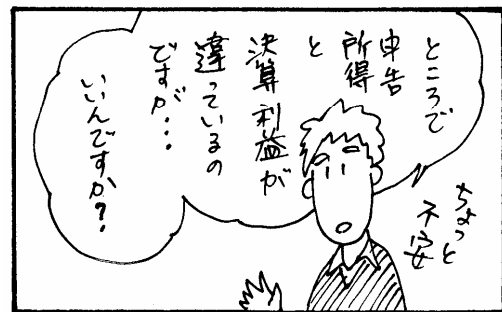 ところで
申告
所得
と
決算利益が
違っているの
ですが・・・
いいんですか?
ちょっと
不安